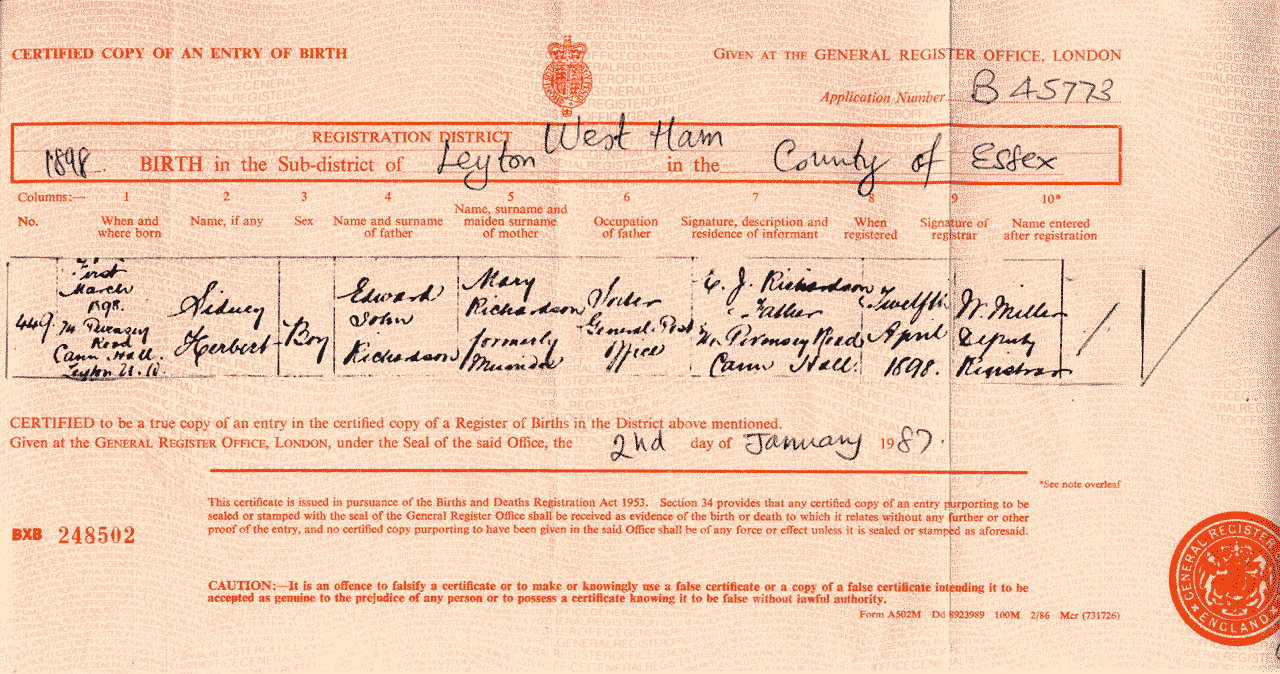 CERTIFIED COPY OF AN ENTRY OF BIRTH
GIVEN AT THE GENERAL REGISTER OFFICE, LONDON
Application Number B 45773
REGISTRATION DISTRICT West Ham
1898 BIRTH in the Sub-district of Leyton in the County of Essex
Columns:— 1 2 3 4 5 6 7 8 9 10*
No. When and where born Name, if any Sex Name and surname of father Name, surname and maiden surname of mother Occupation of father Signature, description and residence of informant When registered Signature of registrar Name entered after registration
449.
First
March
1898.
Pevensey
Road
Cann Hall.
Leyton U.D.
Sidney
Herbert
Boy
Edward
John
Richardson
Mary
Richardson
formerly
General Post
Office
E. J. Richardson
Father
Pevensey Road
Cann Hall.
Twelfth
April
1898.
W. Miller
Deputy
Registrar
CERTIFIED to be a true copy of an entry in the certified copy of a Register of Births in the District above mentioned.
Given at the GENERAL REGISTER OFFICE, LONDON, under the Seal of the said Office, the 2nd day of January 1987.
*See note overleaf
This certificate is issued in pursuance of the Births and Deaths Registration Act 1953. Section 34 provides that any certified copy of an entry purporting to be
sealed or stamped with the seal of the General Register Office shall be received as evidence of the birth or death to which it relates without any further or other
proof of the entry, and no certified copy purporting to have been given in the said Office shall be of any force or effect unless it is sealed or stamped as aforesaid.
BXB 248502
CAUTION:—It is an offence to falsify a certificate or to make or knowingly use a false certificate or a copy of a false certificate intending it to be
accepted as genuine to the prejudice of any person or to possess a certificate knowing it to be false without lawful authority.
Form A502M Dd 8923989 100M 2/86 Mcr (731726)
GENERAL REGISTER
ENGLAND